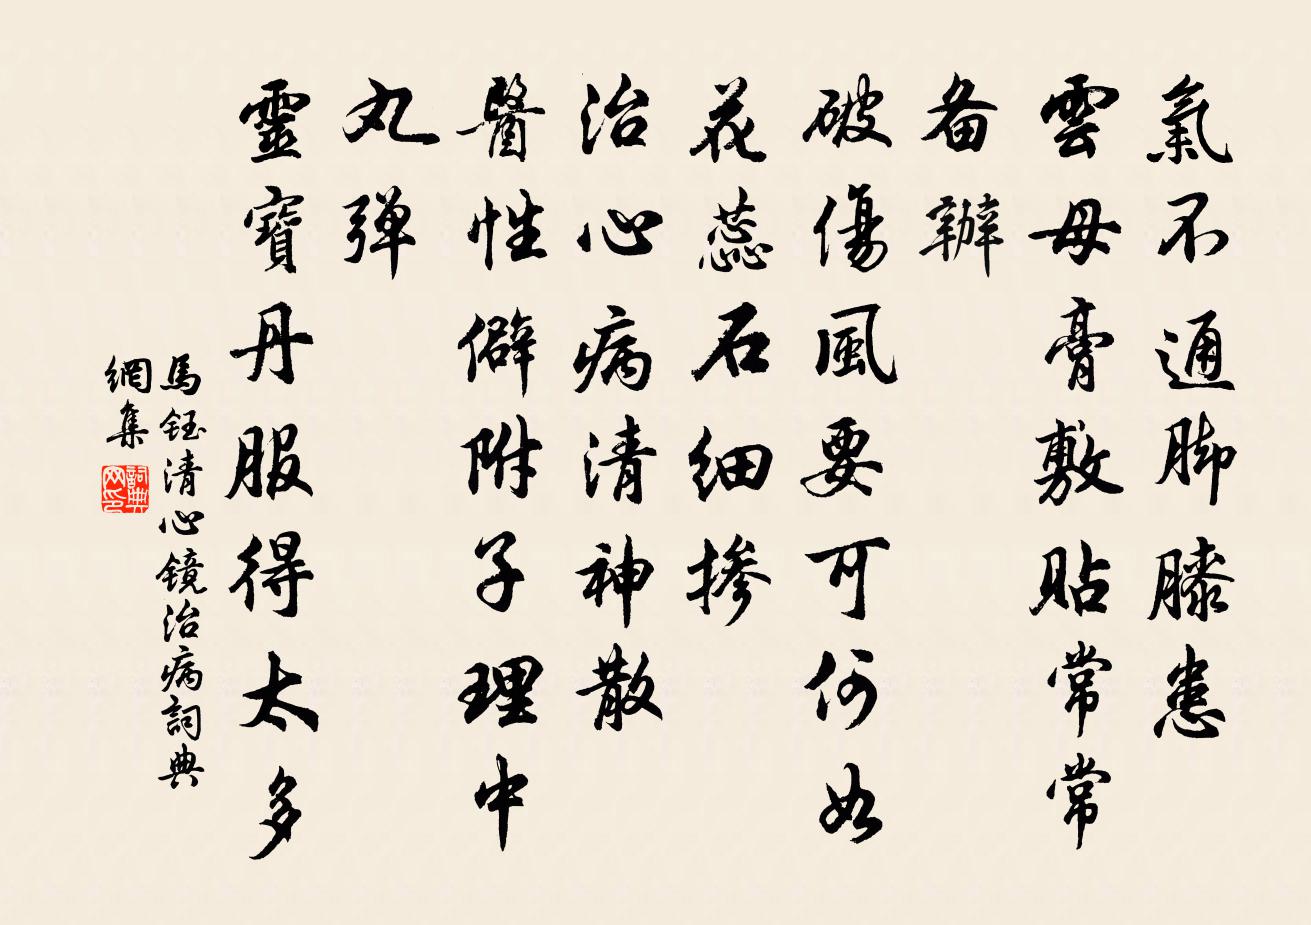 氣不通脚膝患
雲母膏敷貼常常
备辦
破傷風要可何如
花蕊石细掺
治心病清神散
醫性僻附子理中
丸弹
靈寶丹服得太多
馬鈺清心镜治病詞典
網集
詞典网印